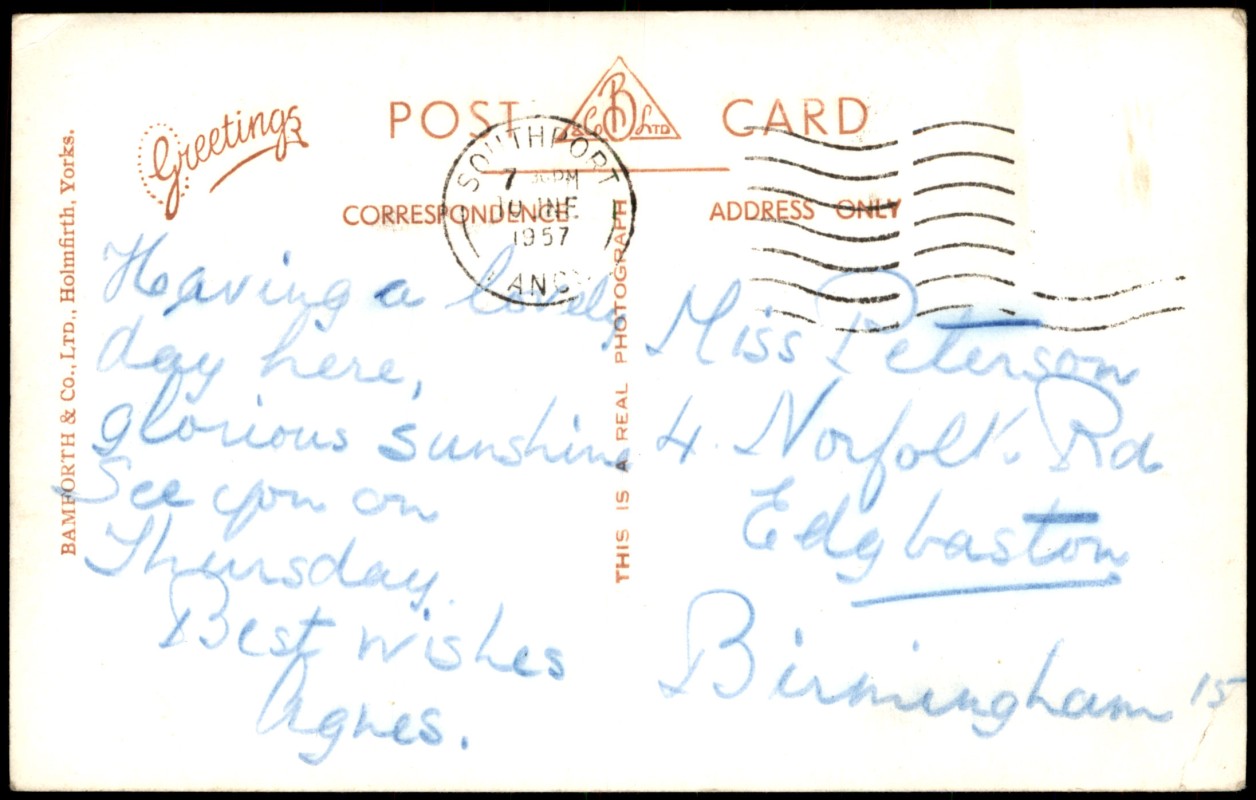 Greetings
POST CARD
B & Co LTD
SOUTHPORT
7 30 PM
10 JNE
1957
LANCS
CORRESPONDENCE
ADDRESS ONLY
BAMFORTH & Co., LTD., Holmfirth, Yorks.
THIS IS A REAL PHOTOGRAPH
Having a lovely
day here,
glorious sunshine
See you on
Thursday.
Best wishes
Agnes.
Miss Peterson
4. Norfolk. Rd
Edgbaston
Birmingham 15